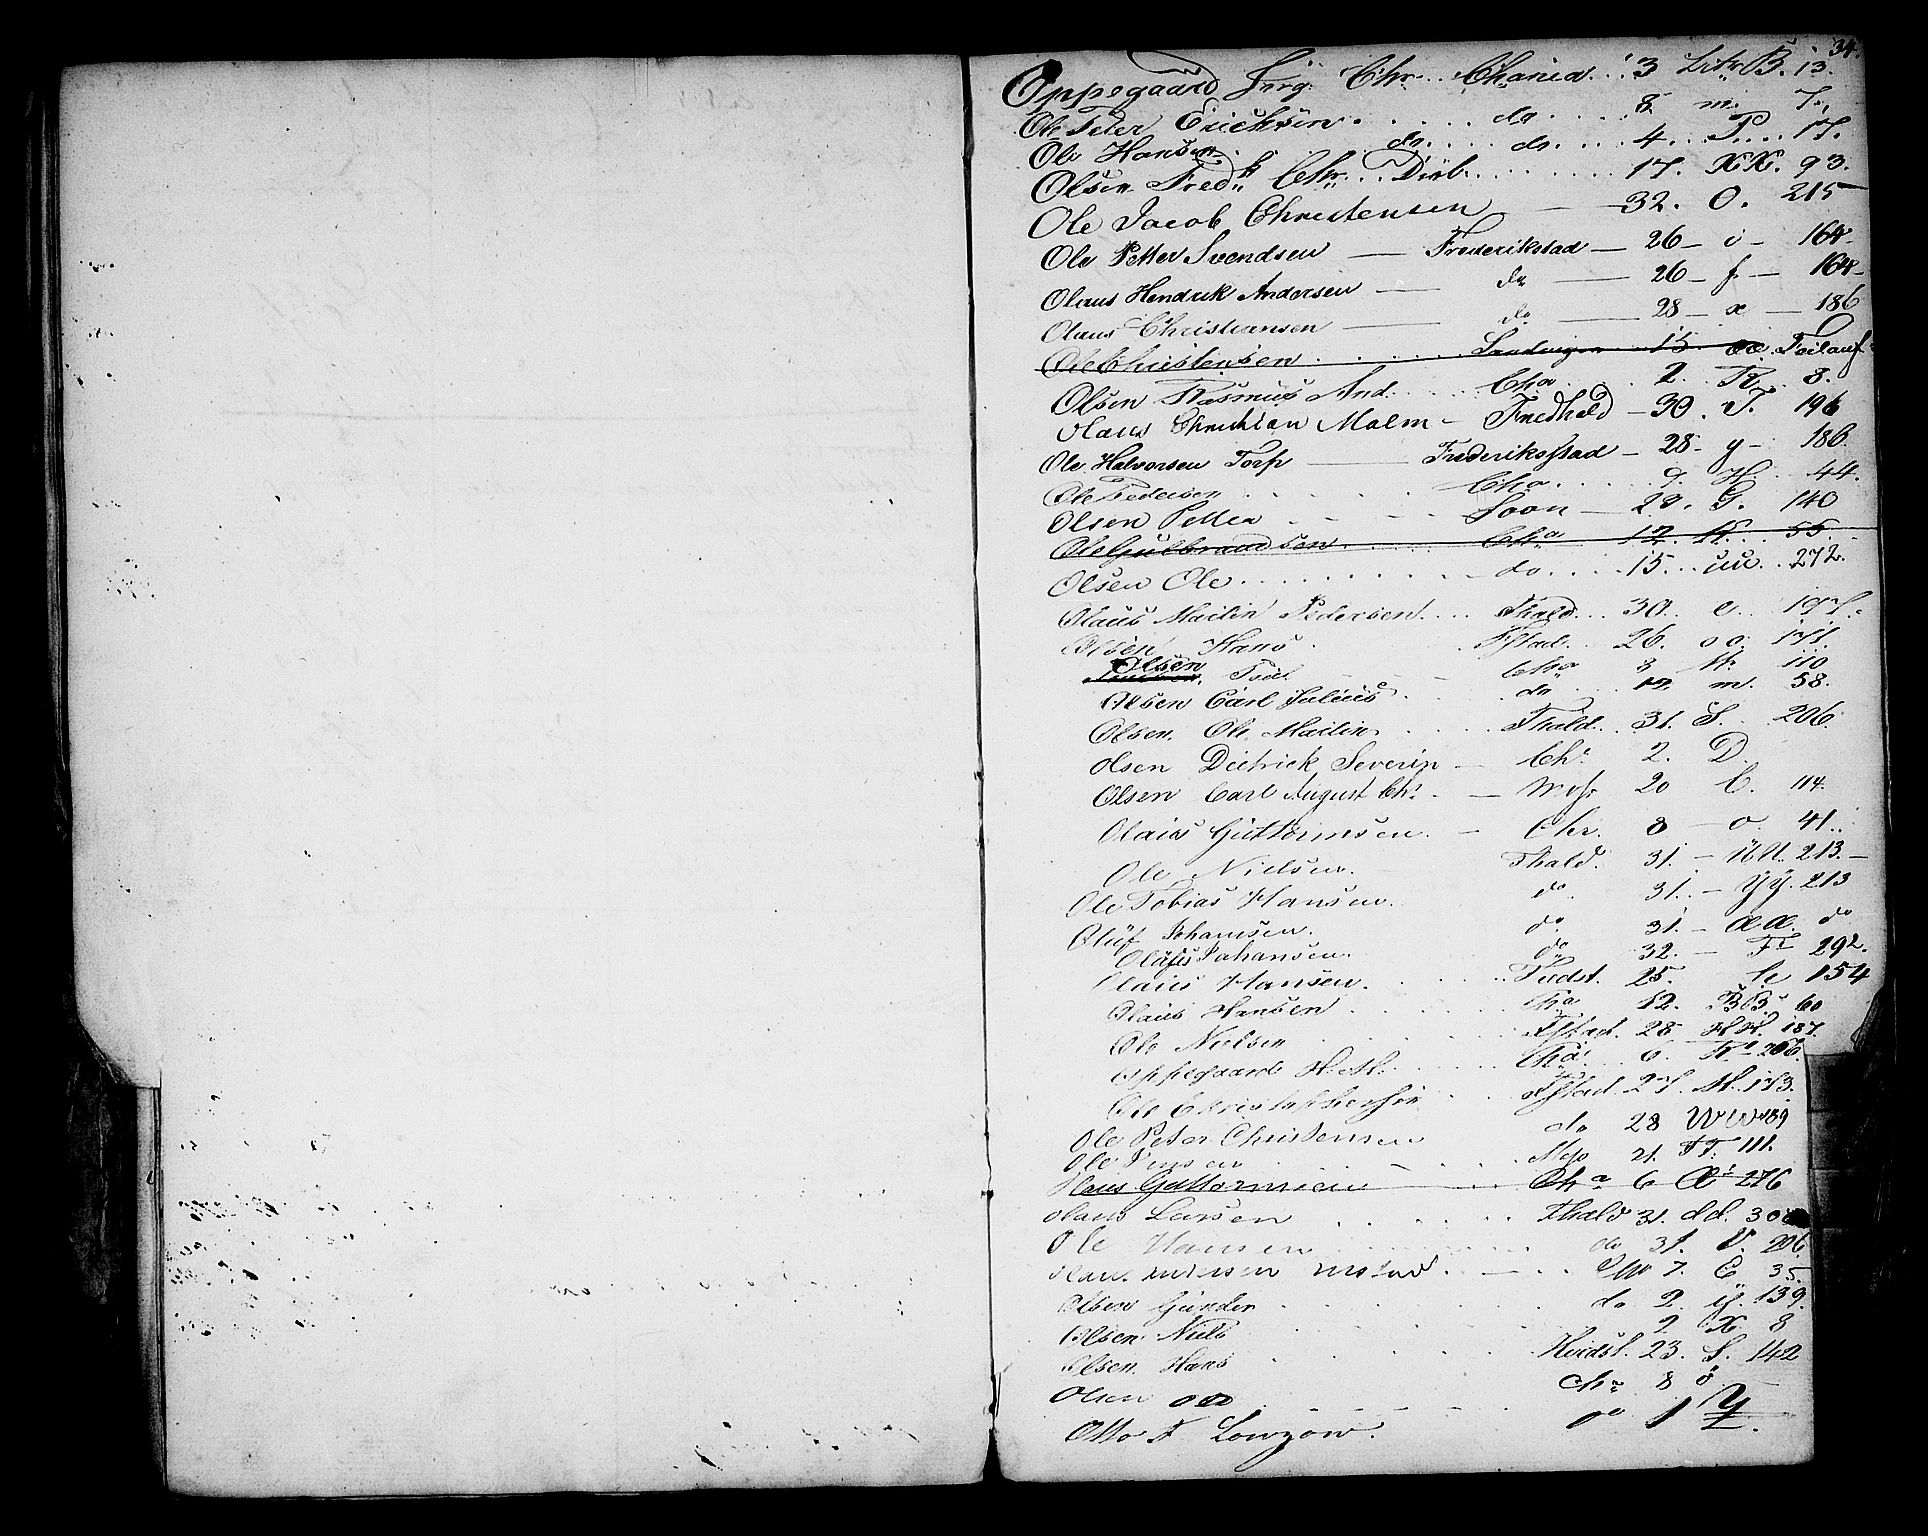 34.
Oppegaard Jørg. Chr. Chania. 3 Litr B. 13.
Ole Peter Erichsen. do. 8 m. 7.
Ole Hansen. do. do. 4. P. 17.
Olsen Fredk Chr. Dørb. 17. XX. 93.
Ole Jacob Christensen — 32. O. 215
Ole Petter Svendsen — Frederikstad — 26 — i — 164
Olaus Hendrik Andersen — do — 26 — f — 164
Olaus Christiansen — do — 28 — x — 186
Ole Christensen 15 œœ
Olsen Rasmus And. Cha. 2. R. 8.
Olaus Christian Malm — Fredhald — 30. T. 196
Ole Halvorsen Torp — Frederiksstad — 28 — y — 186.
Ole Pedersen Cha. 9. H. 44.
Olsen Petter — Soon — 23. G. 140
Ole Gulbrandsen Cha 12. H. 55.
Olsen Ole do. 15. uu. 272.
Olaus Martin Pedersen Fhald. 30. e. 197.
Olsen Hans Fstad. 26. oo. 171.
Olsen Cha 3 110
Olsen Carl Julius do 12. m. 58.
Olsen. Ole Martin. Fhald. 31. S. 206.
Olsen Dietrick Severin — Chr. 2. D.
Olsen Carl August Chr. — Moss 20 C. 114.
Olaus Guttormsen. — Chr. 8 — o. 41.
Ole Nielsen. Fhald. 31. — UU. 213.
Ole Tobias Hansen. do. 31. — YY. 213
Oluf Johansen. do. 31. — ææ. do
Olaus Johansen. do 32. — F 292.
Olaus Hansen. 25. h 154
Olaus Hansen Cha 12. BB. 60
Ole Nielsen Fstad. 28 HH. 187.
Oppegaard H. M. Cha. 6. R 206.
Ole Christophersen Fstad. 27. M. 173.
Ole Peter Christensen do 28 WW 189
Ole Mss 21. FF. 111.
Olaus Guttormsen Cha 6 Æ 276
Olaus Larsen Fhald 31. dd. 30
Ole Hansen do 31. V. 206
7. C 35.
Olsen Gunder do 2. y. 139.
Olsen Niels 2 X 8
Olsen. Hans Hvidst. 23. S. 142
Olsen Chr 8 ö
Otto F Lowzow. do 1 Y.